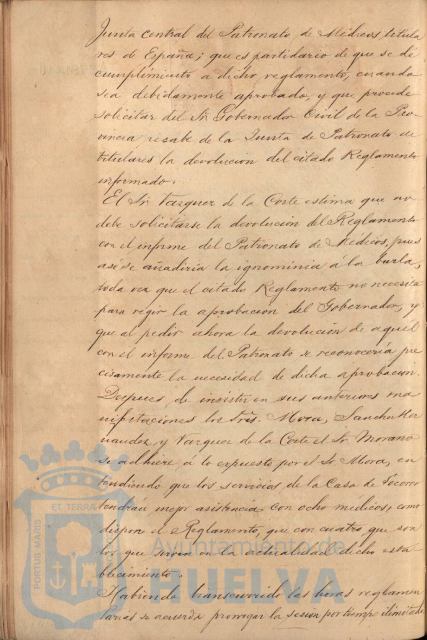 Junta central del Patronato de Médicos titula
res de España; que es partidario de que se dé
cumplimiento a dicho reglamento, cuando
sea debidamente aprobado, y que procede
solicitar del Sr Gobernador Civil de la Pro
vincia recabe de la Junta de Patronato de
titulares la devolucion del citado Reglamento
informado.
El Sr Vazquez de la Corte estima que no
debe solicitarse la devolución del Reglamento
con el informe del Patronato de Médicos, pues
así se añadiria la ignominia á la burla,
toda vez que el citado Reglamento no necesita
para regir la aprobacion del Gobernador, y
que al pedir ahora la devolución de aquel
con el informe del Patronato se reconocería pre
cisamente la necesidad de dicha aprobacion.
Despues de insistir en sus anteriores ma
nifestaciones los Sres. Mora, Sanchez Her
nandez y Vazquez de la Corte el Sr Morano
se adhiere á lo expuesto por el Sr Mora, en
tendiendo que los servicios de la Casa de Socorro
tendran mejor asistencia con ocho médicos, como
dispone el Reglamento, que con cuatro que son
los que sirven en la actualidad dicho esta
blecimiento.
Habiendo transcurrido las horas reglamen
tarias se acuerda prorrogar la sesion por tiempo ilimitado
PORTUS MARIS ET TERRAE
Ayuntamiento de
HUELVA